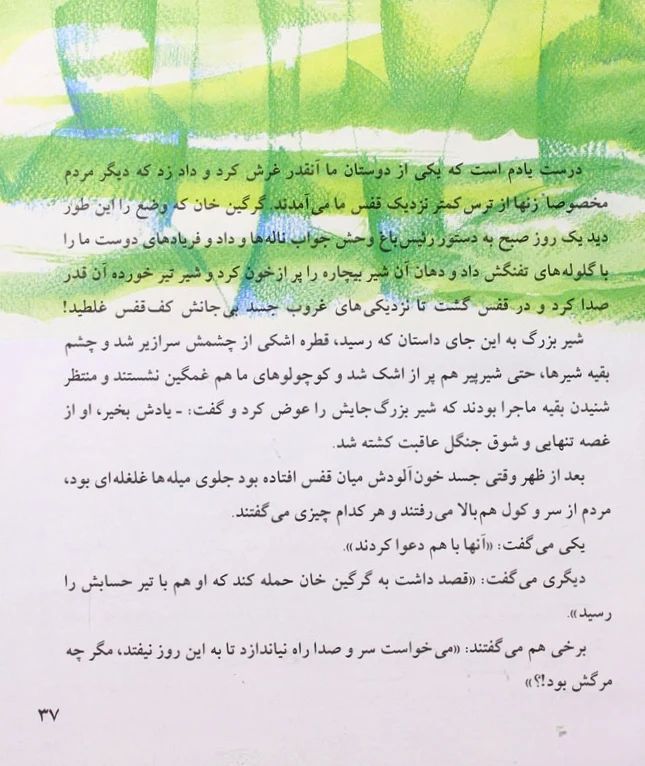 درست یادم است که یکی از دوستان ما آنقدر غرش کرد و داد زد که دیگر مردم
مخصوصاً زنها از ترس کمتر نزدیک قفس ما می‌آمدند. گرگین خان که وضع را این طور
دید یک روز صبح به دستور رئیس باغ وحش جواب ناله‌ها و داد و فریادهای دوست ما را
با گلوله‌های تفنگش داد و دهان آن شیر بیچاره را پر از خون کرد و شیر تیر خورده آن قدر
صدا کرد و در قفس گشت تا نزدیکی‌های غروب جسد بی‌جانش کف قفس غلطید!
شیر بزرگ به این جای داستان که رسید، قطره اشکی از چشمش سرازیر شد و چشم
بقیه شیرها، حتی شیرپیر هم پر از اشک شد و کوچولوهای ما هم غمگین نشستند و منتظر
شنیدن بقیه ماجرا بودند که شیر بزرگ جایش را عوض کرد و گفت: - یادش بخیر، او از
غصه تنهایی و شوق جنگل عاقبت کشته شد.
بعد از ظهر وقتی جسد خون‌آلودش میان قفس افتاده بود جلوی میله‌ها غلغله‌ای بود،
مردم از سر و کول هم بالا می‌رفتند و هر کدام چیزی می‌گفتند.
یکی می‌گفت: «آنها با هم دعوا کردند».
دیگری می‌گفت: «قصد داشت به گرگین خان حمله کند که او هم با تیر حسابش را
رسید».
برخی هم می‌گفتند: «می‌خواست سر و صدا راه نیاندازد تا به این روز نیفتد، مگر چه
مرگش بود!؟»
۳۷